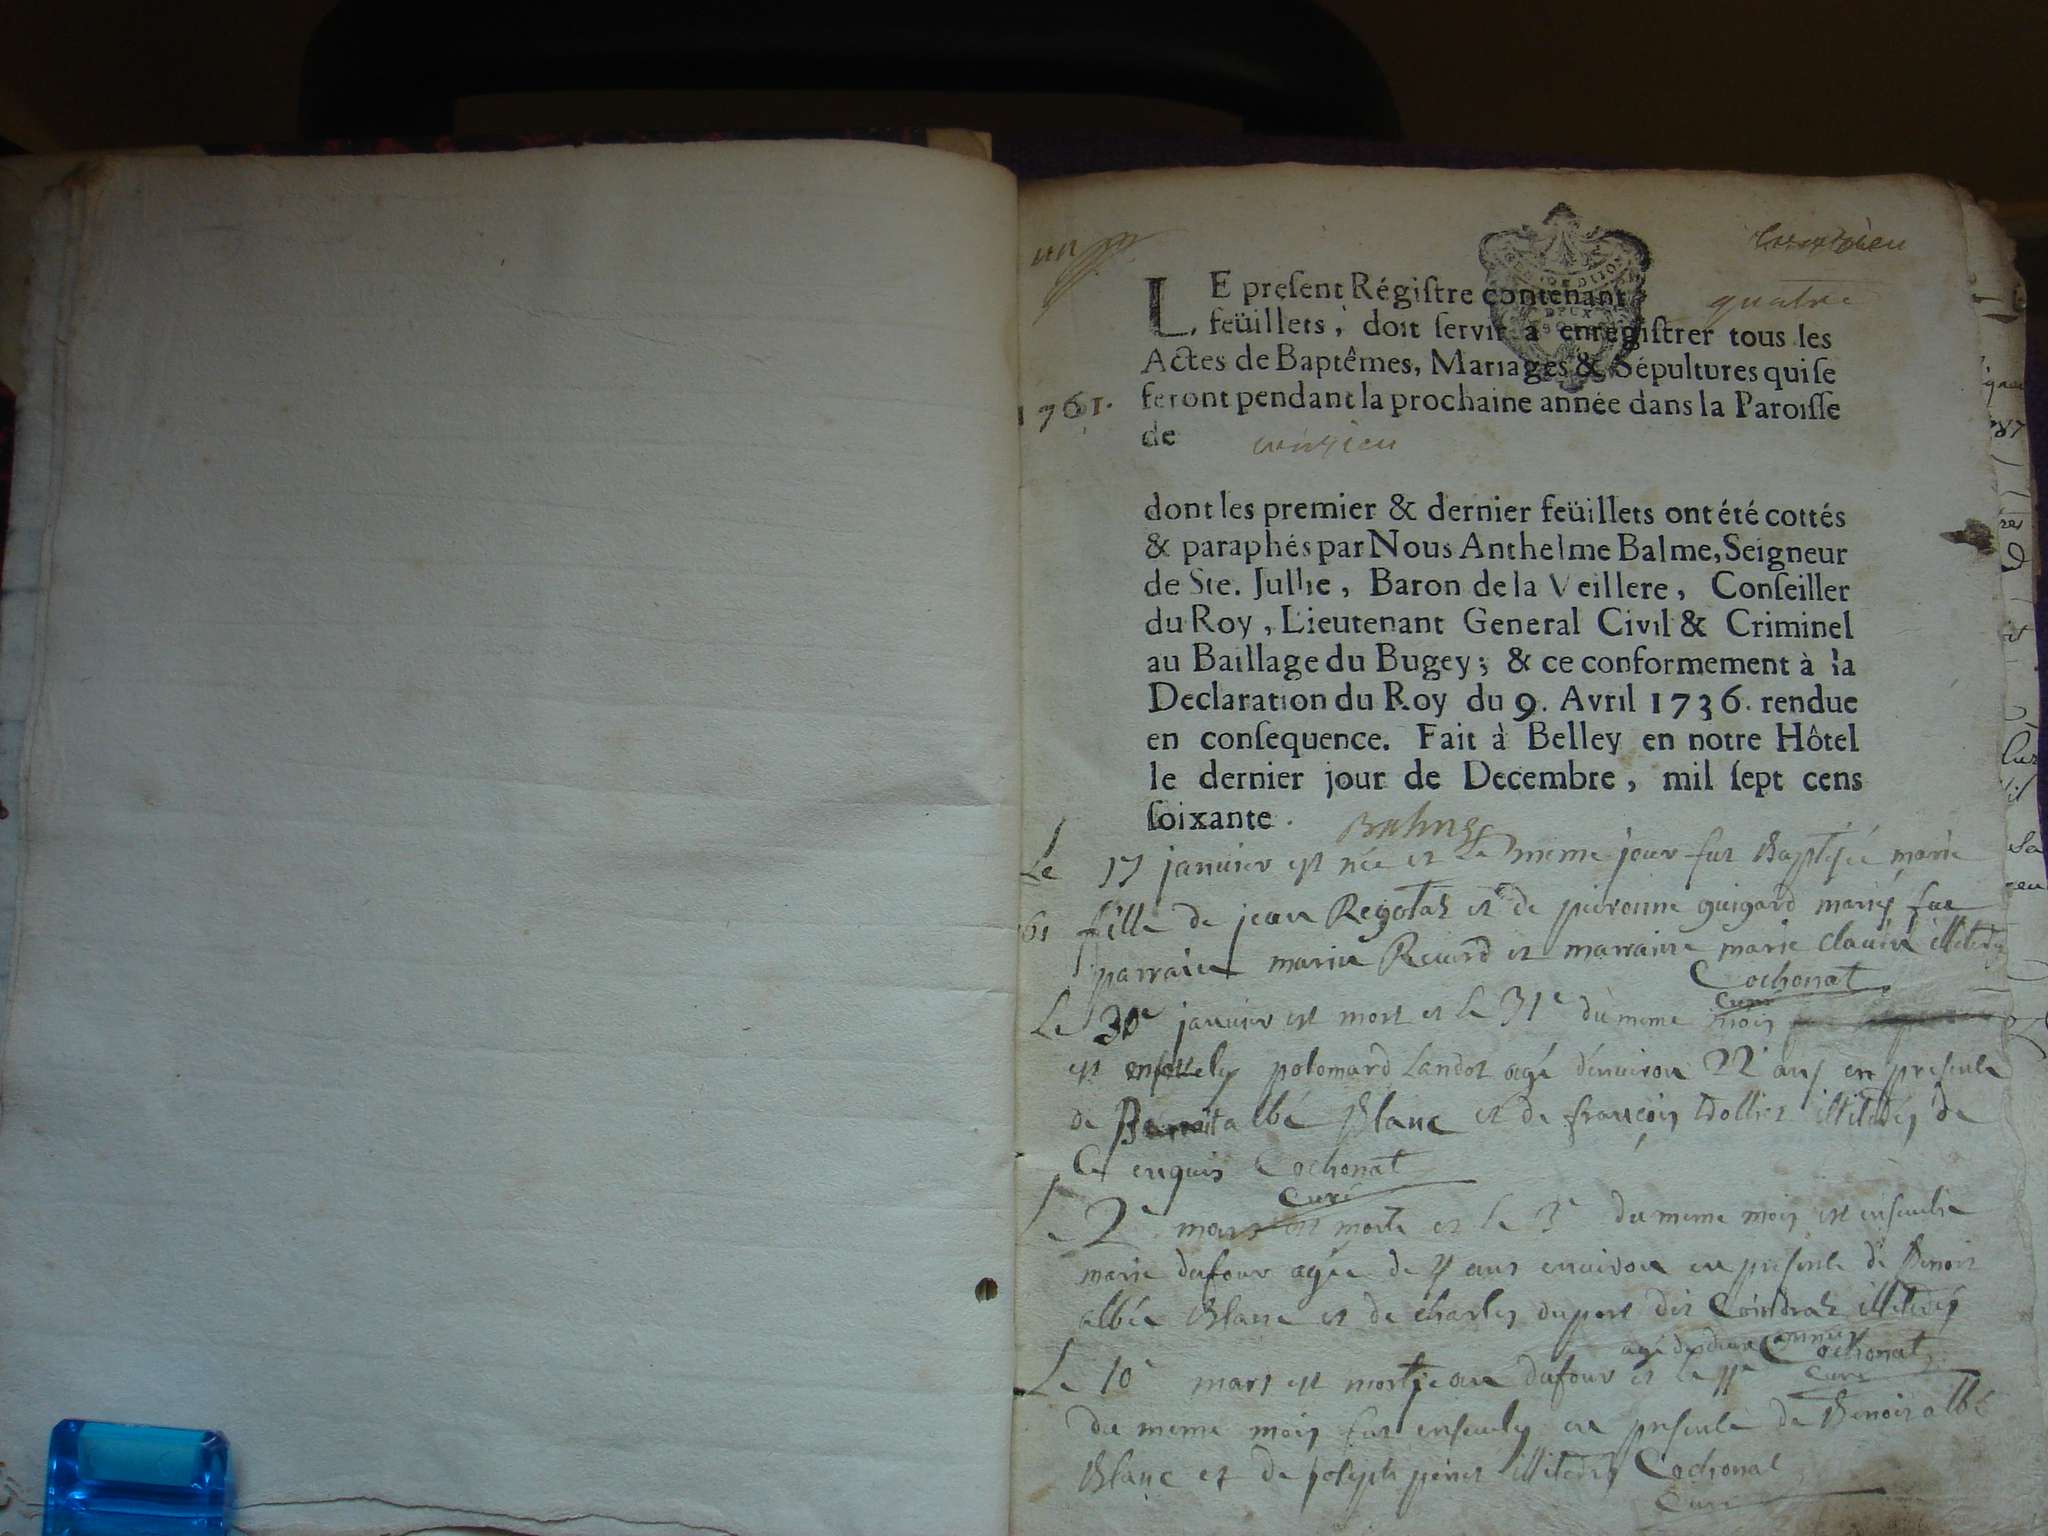 un
quatre
LE present Régistre contenant
feüillets, doit servir à enregistrer tous les
Actes de Baptêmes, Mariages & Sépultures qui se
1761. feront pendant la prochaine année dans la Paroisse
de
dont les premier & dernier feüillets ont été cottés
& paraphés par Nous Anthelme Balme, Seigneur
de Ste. Jullie, Baron de la Veillere, Conseiller
du Roy, Lieutenant General Civil & Criminel
au Baillage du Bugey; & ce conformement à la
Declaration du Roy du 9. Avril 1736. rendue
en consequence. Fait à Belley en notre Hôtel
le dernier jour de Decembre, mil sept cens
soixante. Balme
Le 17 janvier est née et le meme jour fut Baptisée marie
61 fille de jean et de guigard mariés fut
parrain et marraine marie
Cochonat
Curé
Le 30e janvier est mort et le 31e du meme mois
est ensevely Landot agé d'environ 22 ans en presence
de Benoit albé Blanc et de françois illiterés de
ce enquis Cochonat
Curé
Le 2e mars est morte et le 3e du meme mois est ensevelie
marie dufour agée de ans environ en presence de Benoit
albée Blanc et de Charles dupont dit illiterés
Cochonat
Curé
Le 10e mars est mort jean dufour et le 11e
du meme mois fut ensevely en presence de Benoit albé
Blanc et de joseph illiterés Cochonat
Curé